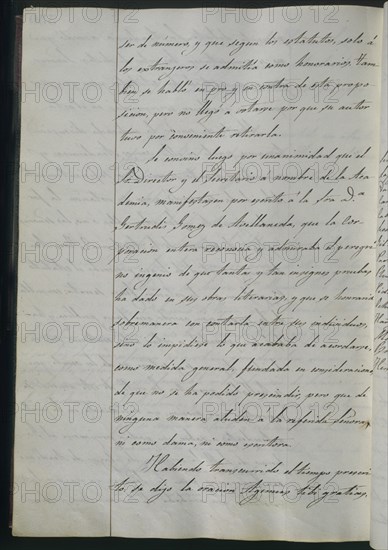 ser de número, y que segun los estatutos, solo á
los extrangeros se admitia como honorarios. Tam-
bien se habló en pro y en contra de esta propo-
sicion, pero no llegó a votarse por que su autor
tuvo por conveniente retirarla.
Se convino luego por unanimidad que el
Sr. Director y el Secretario á nombre de la Aca-
demia, manifestasen por escrito á la Sra. D.a
Gertrudis Gomez de Avellaneda, que la Cor-
poracion entera reconocia y admiraba el peregri-
no ingenio de que tantas y tan insignes pruebas
ha dado en sus obras literarias, y que se honraria
sobremanera con contarla entre sus individuos,
sino lo impidiese lo que acababa de acordarse
como medida general, fundada en consideraciones
de que no se ha podido prescindir, pero que de
ninguna manera aluden á la referida Señora,
ni como dama, ni como escritora.
Habiendo transcurrido el tiempo prescri-
to, se dijo la oracion Agimus tibi gratias,
PHOTO12